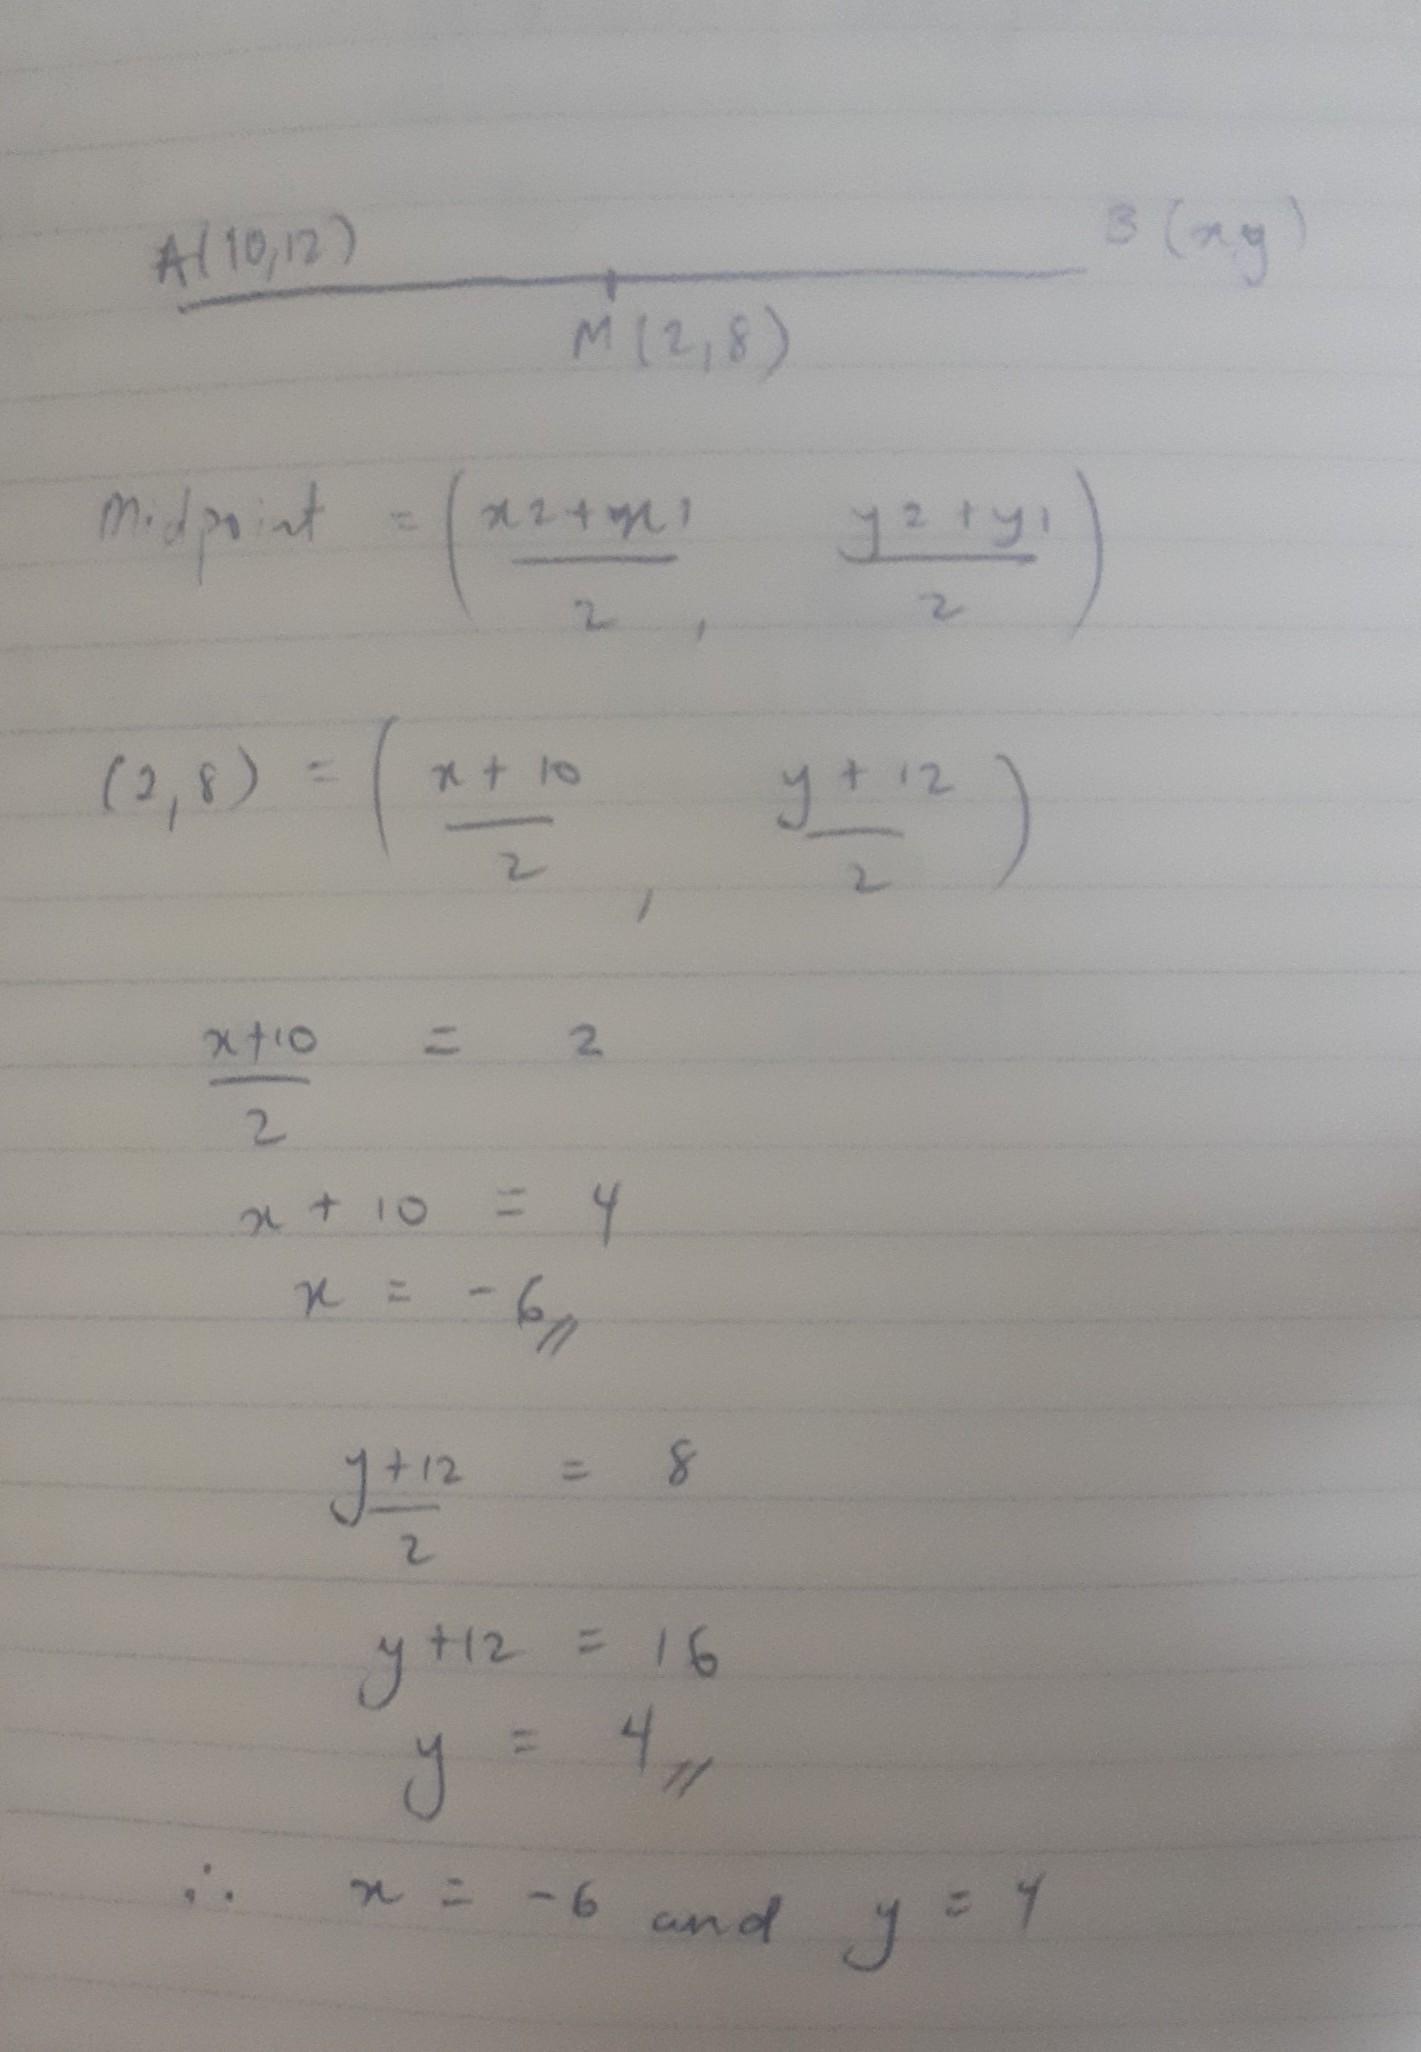 A(10,12) B(x y)
M(2,8)
Midpoint = (x2+x1/2, y2+y1/2)
(2,8) = (x+10/2, y+12/2)
x+10/2 = 2
x+10 = 4
x = -6
y+12/2 = 8
y+12 = 16
y = 4
∴ x = -6 and y = 4